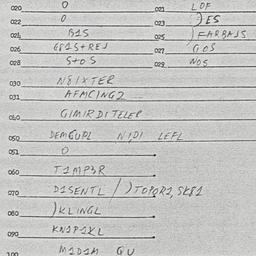 020 0 021 LDF
022 0 023 )ES
024 B1S 025 )FARBAJS
026 G81S+REJ 027 GOS
028 S+OS 029 NOS
030 N8IXTER
031 AFMCING2
040 GIMIRDITELEP
050 DEMGUPL NIDI LEFL
051 0
060 T1MP3R
070 D1SENTL / )TOPQR2, SK81
080 )KLINGL
090 KN1P1KL
100 M1D1M GU